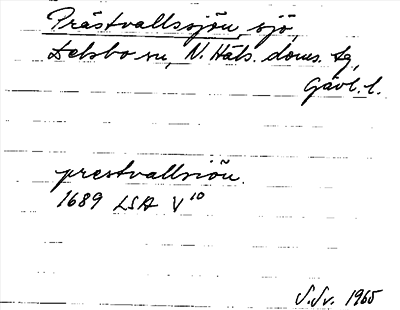 Prästvallssjön, sjö,
Delsbo sn, N. Häls. doms. tg,
Gävl. l.
prestvallsiöñ.
1689 LSA V¹⁰
S.Sv. 1965